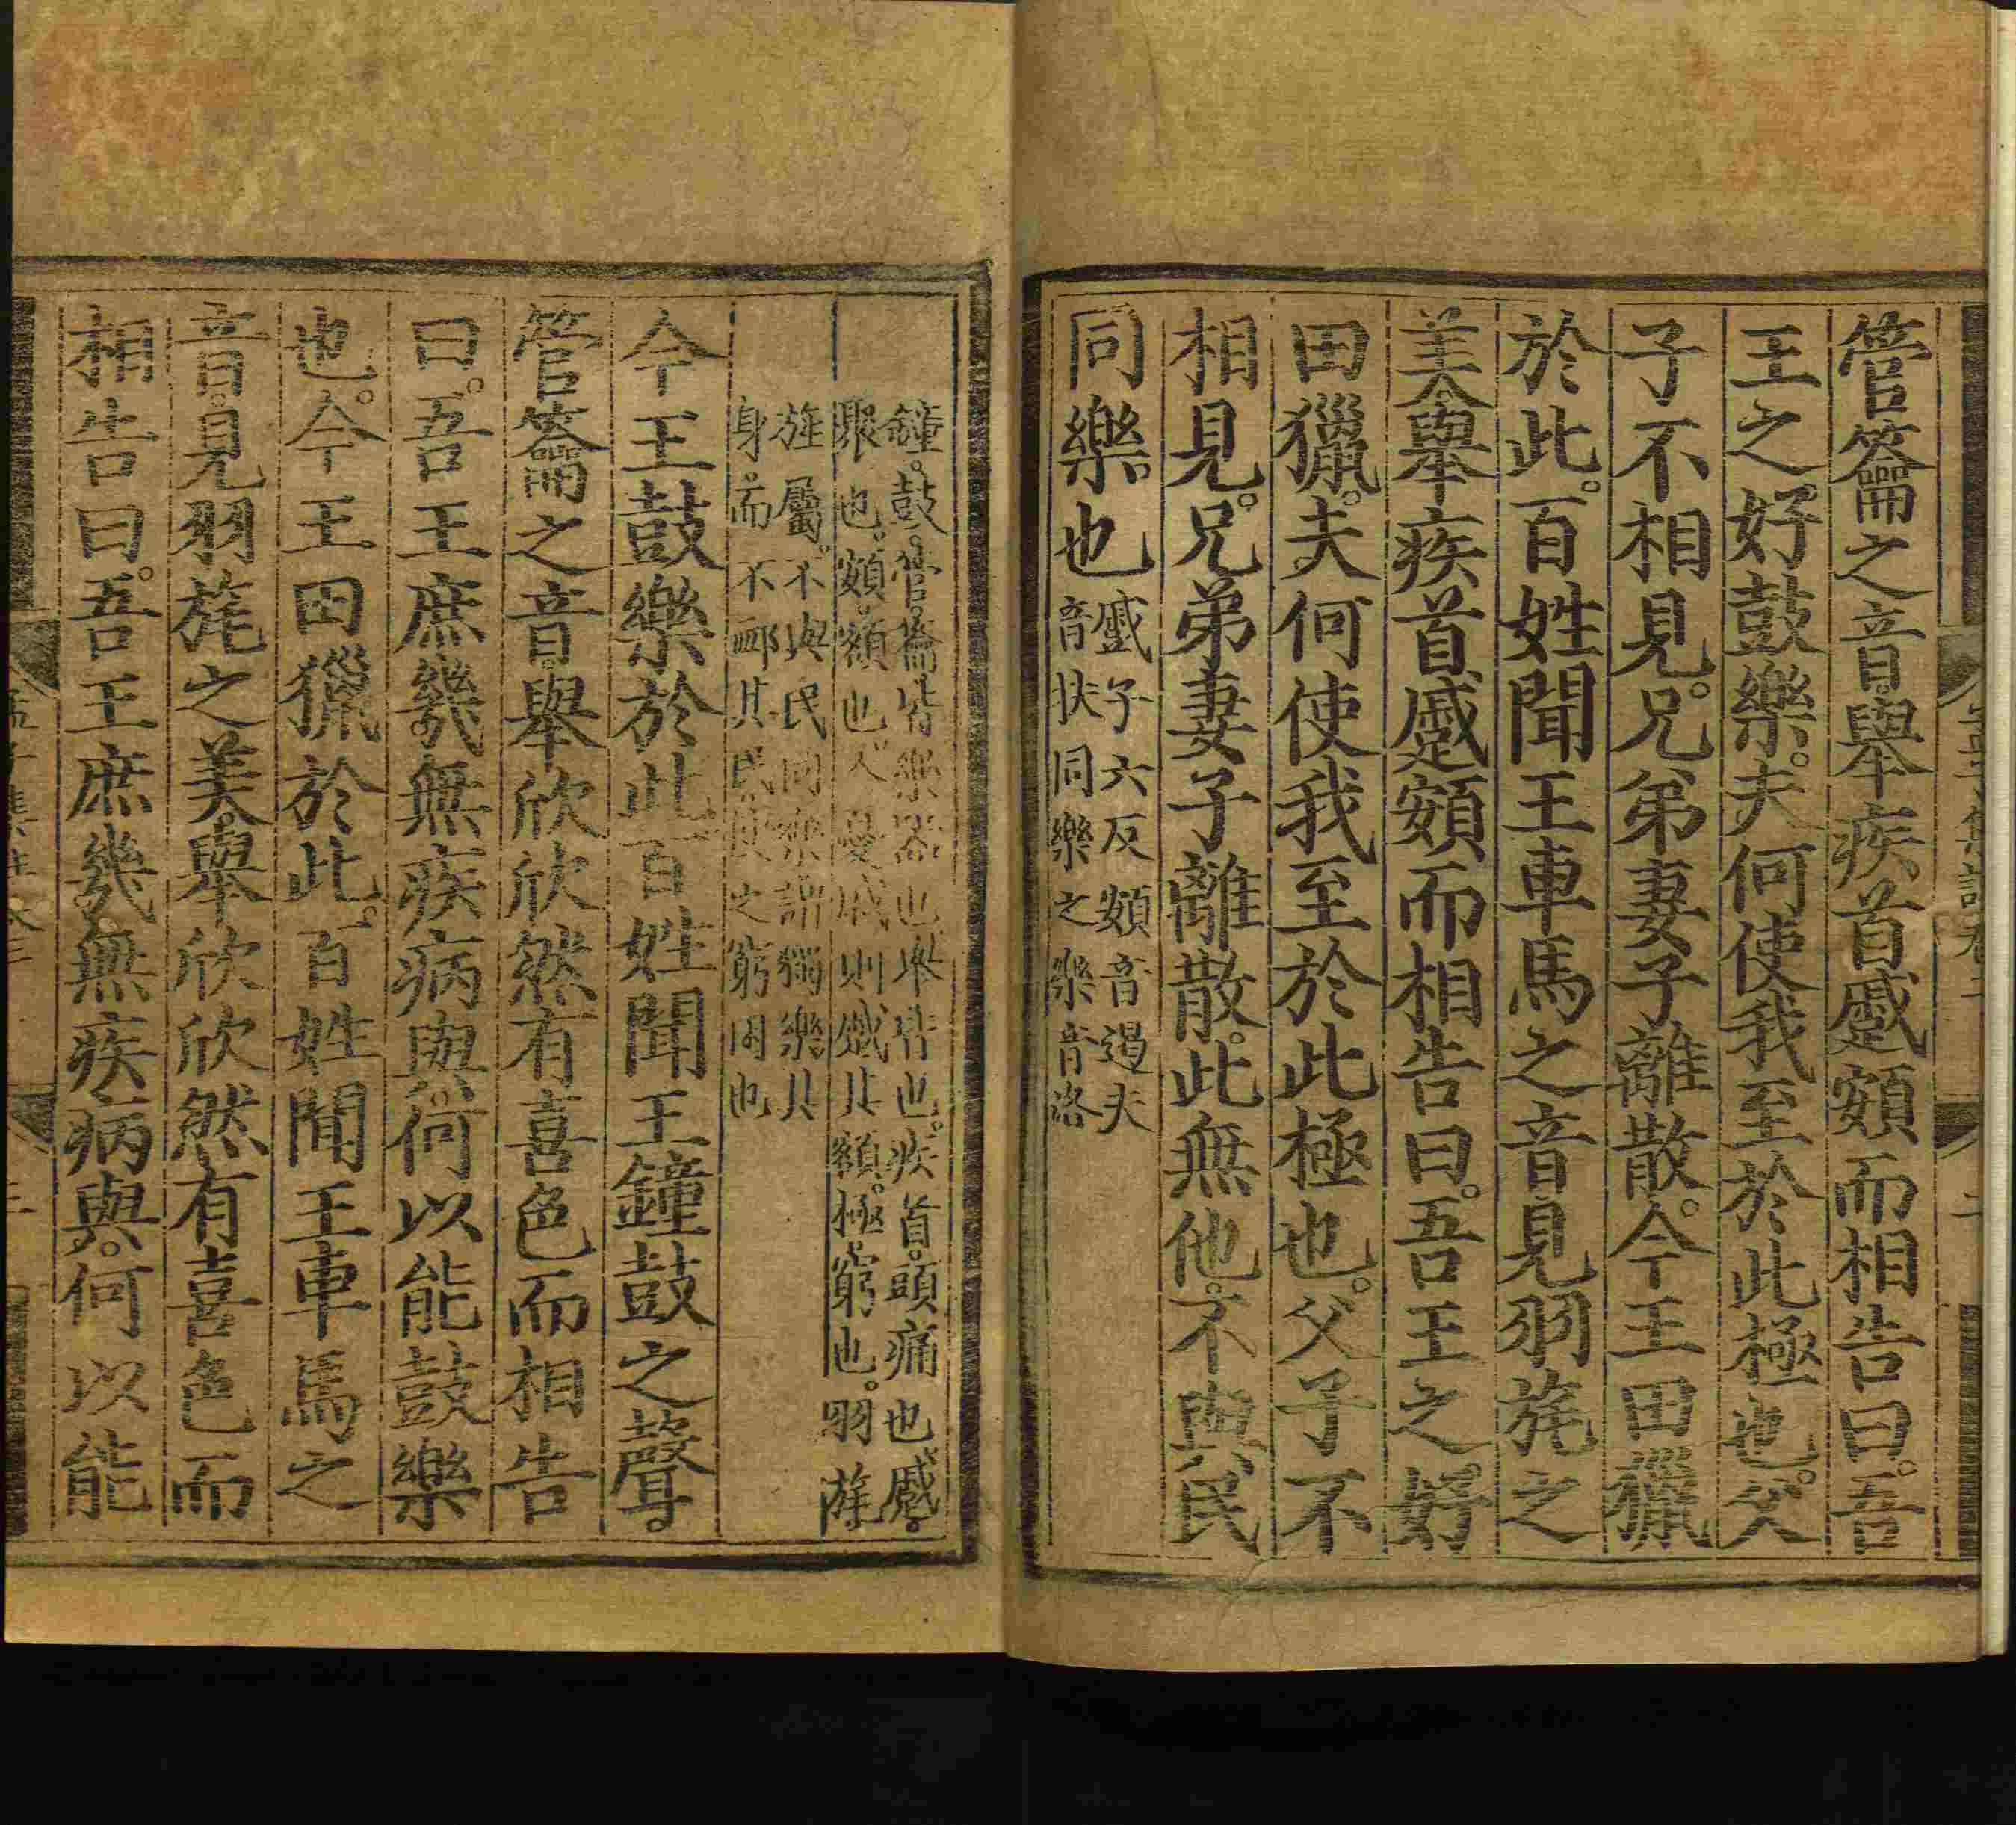 管籥之音舉疾首蹙頞而相告曰吾
王之好鼓樂夫何使我至於此極也父
子不相見兄弟妻子離散今王田獵
於此百姓聞王車馬之音見羽旄之
美舉疾首蹙頞而相告曰吾王之好
田獵夫何使我至於此極也父子不
相見兄弟妻子離散此無他不與民
同樂也
蹙子六反頞音遏夫
音扶同樂之樂音洛
鐘鼓管籥皆樂器也舉皆也疾首頭痛也蹙
聚也頞額也人憂戚則蹙其額極窮也羽旄
旌屬不與民同樂謂獨樂其
身而不卹其民使之窮困也
今王鼓樂於此百姓聞王鐘鼓之聲
管籥之音舉欣欣然有喜色而相告
曰吾王庶幾無疾病與何以能鼓樂
也今王田獵於此百姓聞王車馬之
音見羽旄之美舉欣欣然有喜色而
相告曰吾王庶幾無疾病與何以能